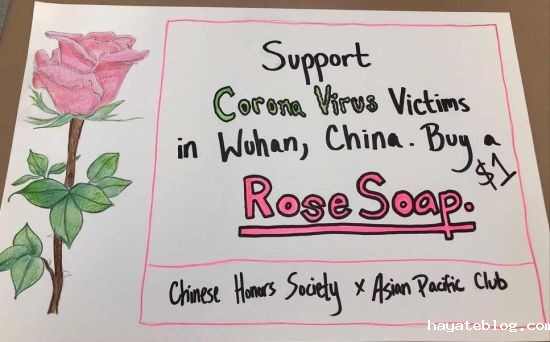 Support
Corona Virus Victims
in Wuhan, China. Buy a
$1
Rose Soap.
Chinese Honors Society x Asian Pacific Club
hayateblog.com